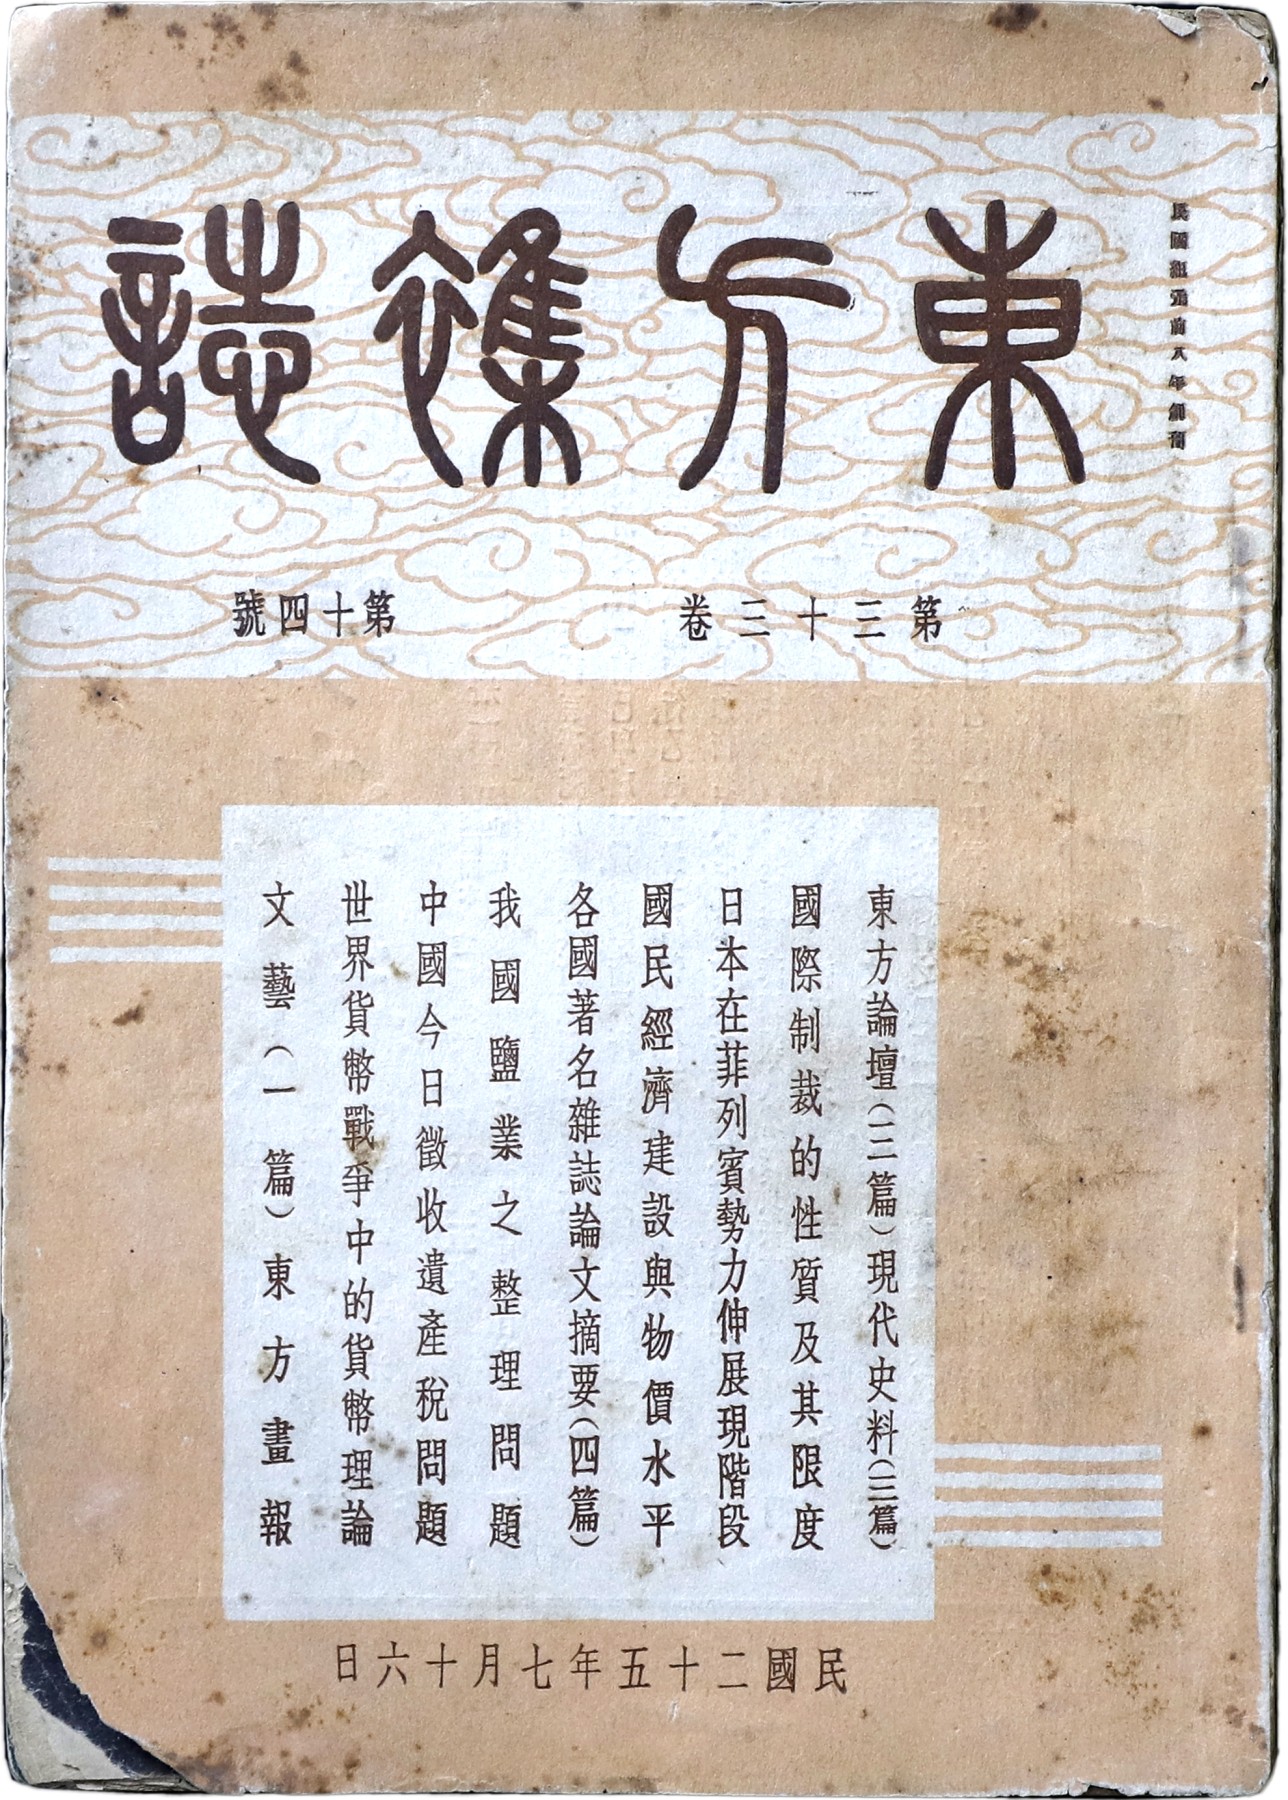 民國紀元前八年創刊
東方雜誌
第三十三卷 第十四號
東方論壇(三篇)現代史料(三篇)
國際制裁的性質及其限度
日本在菲列賓勢力伸展現階段
國民經濟建設與物價水平
各國著名雜誌論文摘要(四篇)
我國鹽業之整理問題
中國今日徵收遺產稅問題
世界貨幣戰爭中的貨幣理論
文藝(一篇)東方畫報
民國二十五年七月十六日